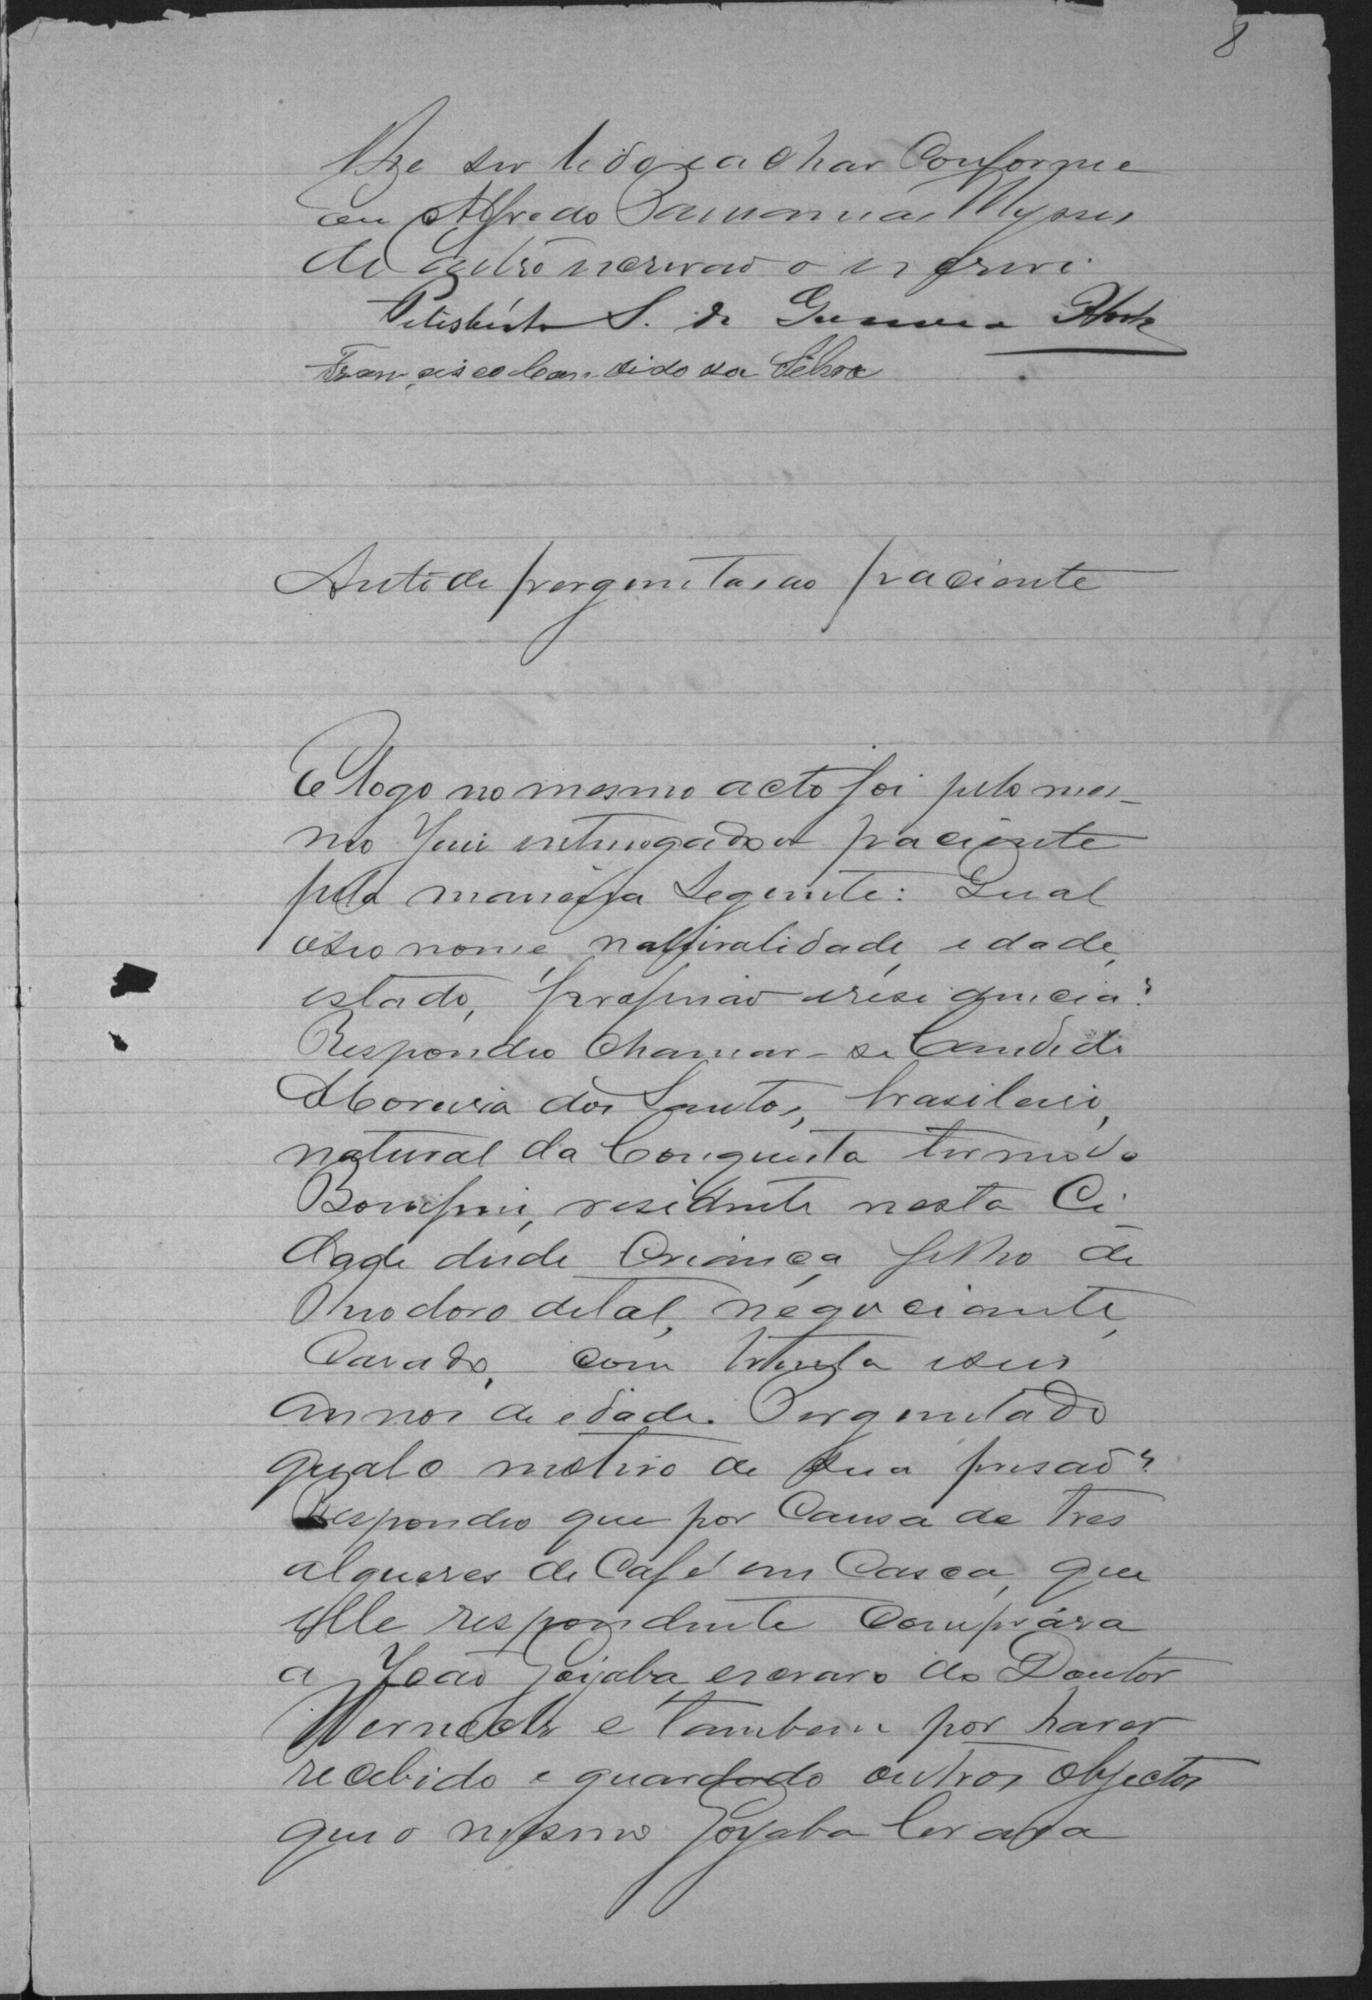 8
lhe ser lido e achar conforme
eu Alfredo
de Castro escrivão o escrevi.
S. de Gusmão
Francisco Candido da Silva
Auto de perguntas ao paciente
E logo no mesmo acto foi pelo mes-
mo Juiz interrogado o paciente
pela maneira seguinte: Qual
o seo nome, naturalidade, edade,
estado, profissão e residencia?
Respondeo chamar-se Candido
Moreira dos Santos, brasileiro,
natural da Conquista termo do
Bomfim, residente nesta Ci-
dade desde criança, filho de
Theodoro de tal, negociante,
casado, com trinta e seis
annos de edade. Perguntado
qual o motivo de sua prisão?
Respondeo que por causa de tres
alqueres de Café em Casca, que
elle respondente comprára
a João Goyaba, escravo do Doutor
Werneck e tambem por haver
recebido e guardado outros objectos
que o mesmo Goyaba levava